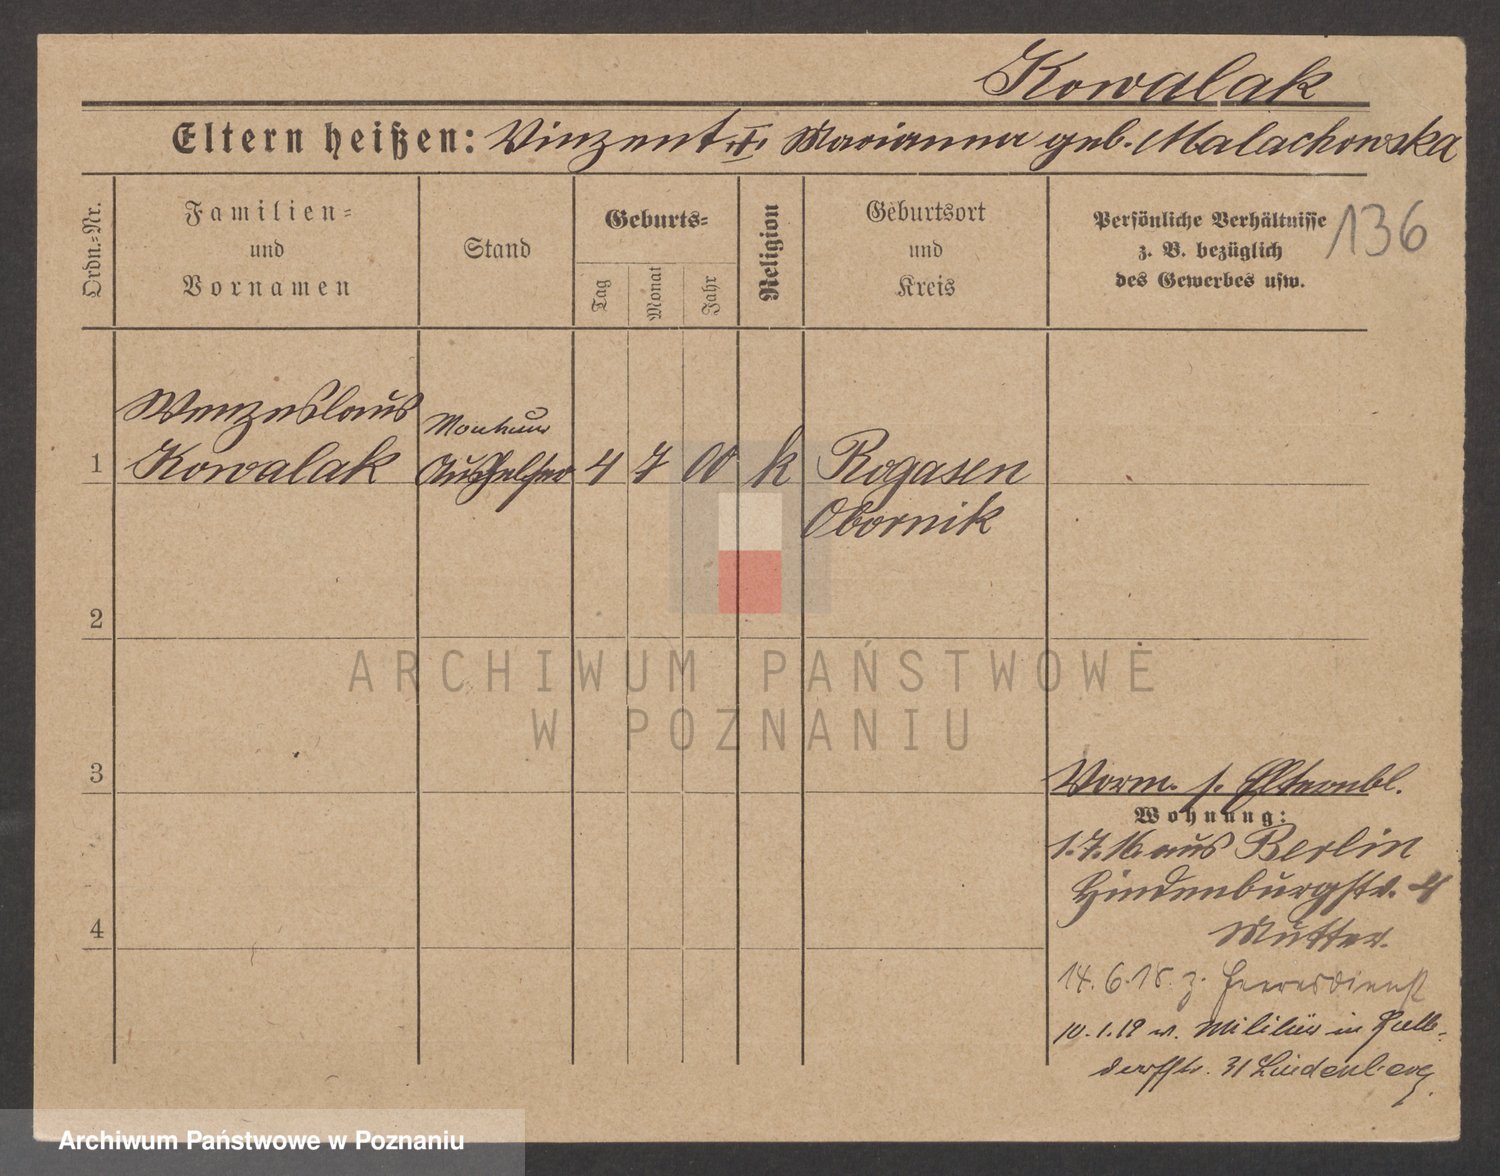 Kowalak
Eltern heißen: Vinzent u. Marianna geb. Malachowska
Ordn.=Nr.
Familien=
und
Vornamen
Stand
Geburts=
Tag
Monat
Jahr
Religion
Geburtsort
und
Kreis
Persönliche Verhältnisse
z. B. bezüglich
des Gewerbes usw.
136
Wenzeslaus
Kowalak
1
4 7 00 k Rogasen
Obornik
2
ARCHIWUM PAŃSTWOWE
W POZNANIU
3
Vorm. s. Elternbl.
Wohnung:
1.7.16 aus Berlin
Hindenburgstr. 4
Mutter.
4
14.6.18 z. Heeresdienst
10.1.19 v. Militär in
31 Lindenberg.
Archiwum Państwowe w Poznaniu